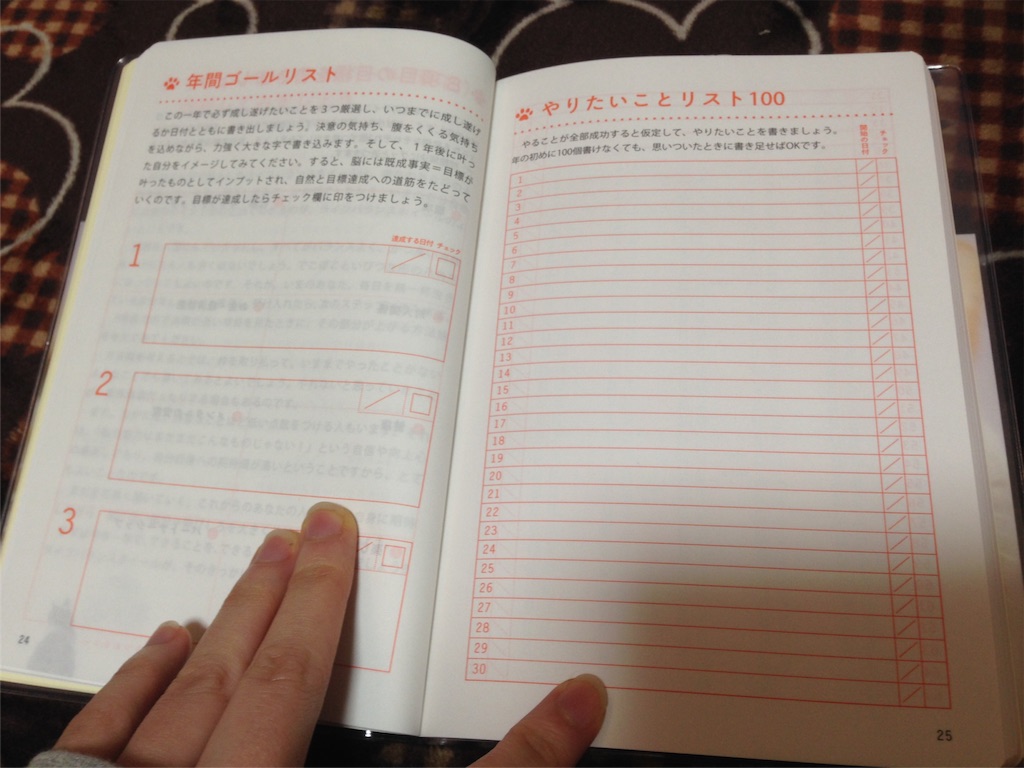 年間ゴールリスト
この一年で必ず成し遂げたいことを3つ厳選し、いつまでに成し遂げ
るか日付とともに書き出しましょう。決意の気持ち、腹をくくる気持ち
を込めながら、力強く大きな字で書き込みます。そして、1年後に叶っ
た自分をイメージしてみてください。すると、脳には既成事実=目標が
叶ったものとしてインプットされ、自然と目標達成への道筋をたどって
いくのです。目標が達成したらチェック欄に印をつけましょう。
達成する日付 チェック
1
2
3
24
やりたいことリスト100
やることが全部成功すると仮定して、やりたいことを書きましょう。
年の初めに100個書けなくても、思いついたときに書き足せばOKです。
開始の日付
チェック
1
2
3
4
5
6
7
8
9
10
11
12
13
14
15
16
17
18
19
20
21
22
23
24
25
26
27
28
29
30
25